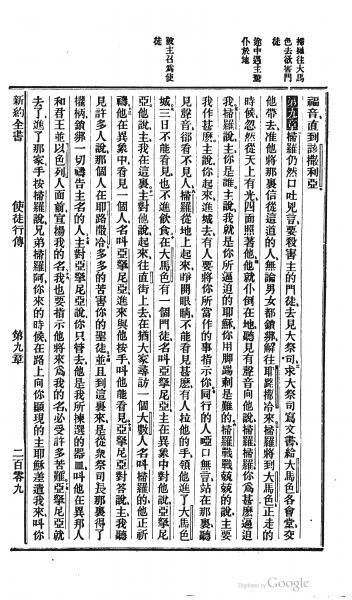 掃羅往大馬
色去欲害門
徒
途中遇主驚
仆於地
彼主召爲使
徒
福音直到該撒利亞
第九章 掃羅仍然口吐兇言要殺害主的門徒去見大祭司求大祭司寫文書給大馬色各會堂交
他帶去准他將那裏信從這道的人無論男女都鎖綁解往耶路撒冷來掃羅將到大馬色正走的
時候忽然從天上有光四面照著他他就仆倒在地聽見有聲音向他說掃羅掃羅你爲甚麽逼迫
我掃羅說主你是誰主說我就是你所逼迫的耶穌你用脚踢刺是難的掃羅戰戰兢兢的說主要
我作甚麽主說你起來進城去有人要將你所當作的事指示你同行的人啞口無言站在那裏聽
見聲音卻看不見人掃羅從地上起來睜開眼睛不能看見甚麽有人拉他的手領他進了大馬色
城三日不能看見也不進飲食在大馬色有一個門徒名叫亞拏尼亞主在異象中對他說亞拏尼
亞他說主我在這裏主對他說起來往直街上去在猶大家尋訪一個大數人名叫掃羅的他正祈
禱他在異象中看見一個人名叫亞拏尼亞進來與他按手叫他能看見亞拏尼亞對答說主我聽
見許多人說那個人在耶路撒冷多多的苦害你的聖徒並且到這裏來是從衆祭司長那裏得了
權柄鎖綁一切禱告主名的人主對亞拏尼亞說你只管去他是我所揀選的器皿叫他在異邦人
和君王並以色列人面前宣揚我的名我也要指示他將來爲我的名必受許多苦難亞拏尼亞就
去了進了那家手按掃羅說兄弟掃羅阿你來的時候在路上向你顯現的主耶穌差遣我來叫你
新約全書 使徒行傳 第九章 二百零九
Digitized by Google